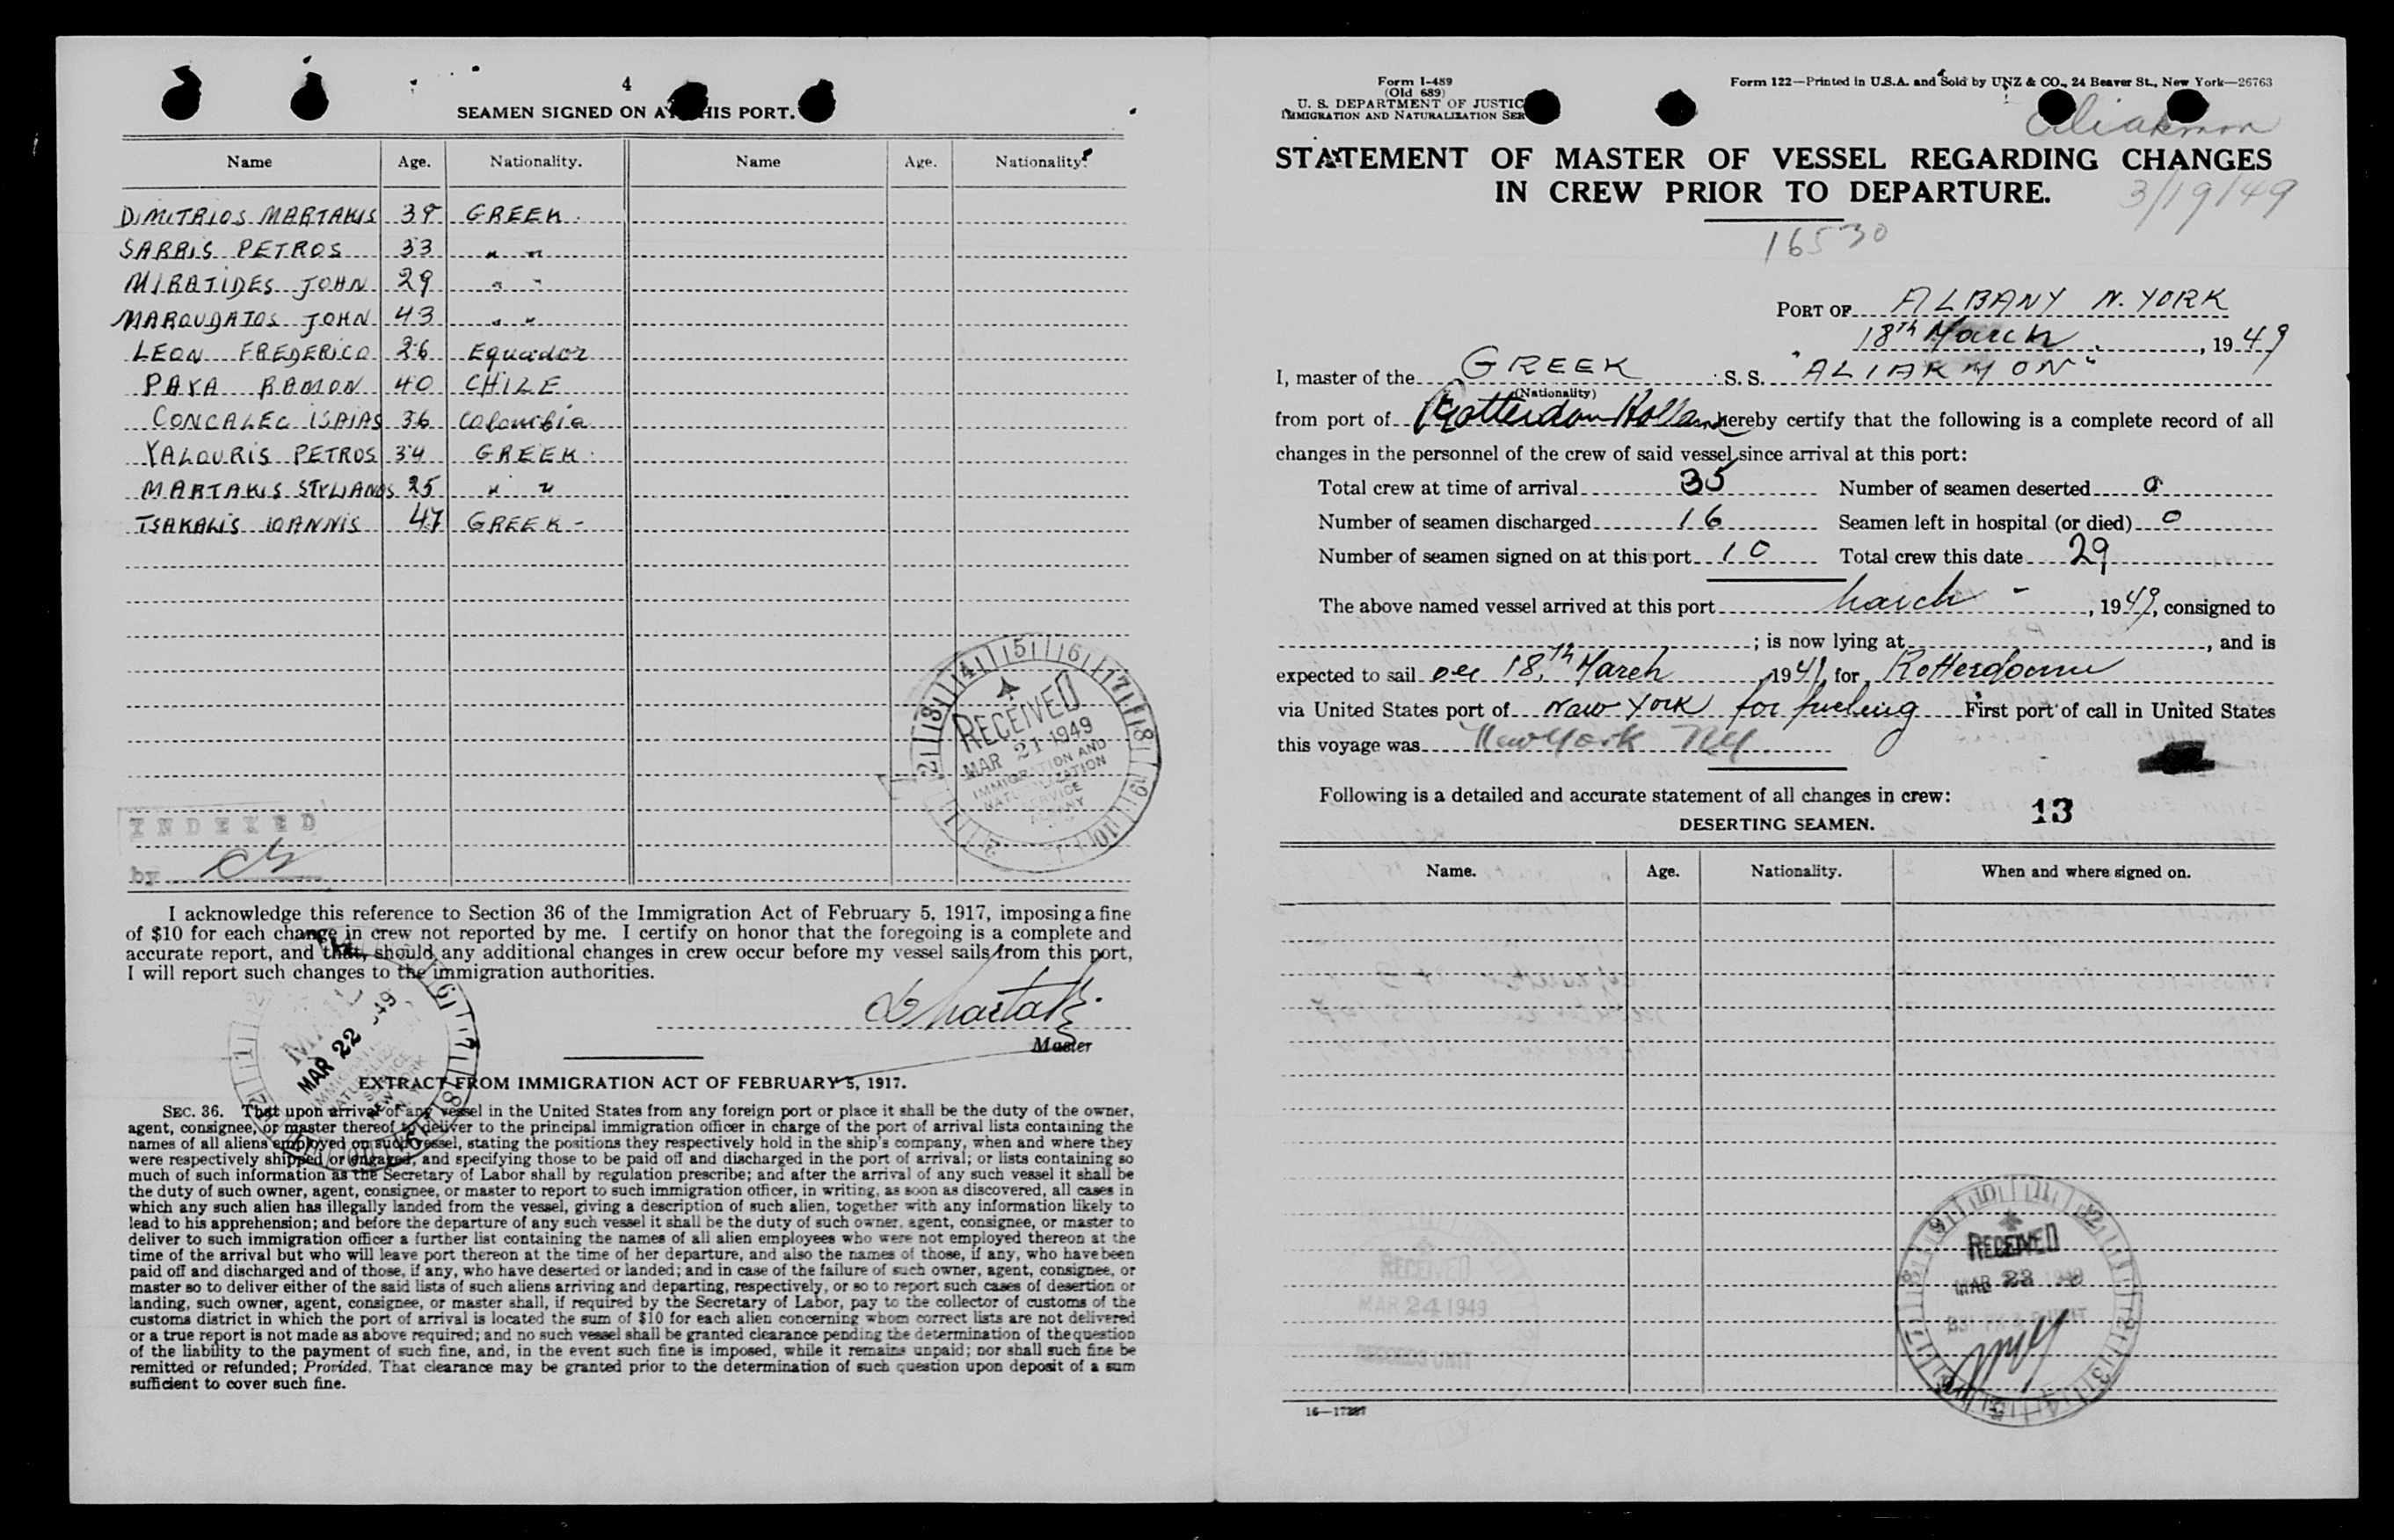 4
SEAMEN SIGNED ON AT THIS PORT.
Name Age. Nationality. Name Age. Nationality.
DIMITRIOS MARTAKIS 39 GREEK.
SARRIS PETROS 33 " "
MIRATIDES JOHN 29 " "
MAROUDATOS JOHN 43 " "
LEON FREDERICO 26 Equador
PAYA RAMON 40 CHILE
CONCALEC ISAIAS 36 Colombia
YALOURIS PETROS 34 GREEK.
MARTAKIS STYLIANOS 25 " "
TSAKALIS IOANNIS 47 GREEK -
RECEIVED
MAR 21 1949
IMMIGRATION AND
NATURALIZATION
SERVICE
ALBANY
INDEXED
by
I acknowledge this reference to Section 36 of the Immigration Act of February 5, 1917, imposing a fine
of $10 for each change in crew not reported by me. I certify on honor that the foregoing is a complete and
accurate report, and that, should any additional changes in crew occur before my vessel sails from this port,
I will report such changes to the immigration authorities.
Master
MAR 22 49
EXTRACT FROM IMMIGRATION ACT OF FEBRUARY 5, 1917.
SEC. 36. That upon arrival of any vessel in the United States from any foreign port or place it shall be the duty of the owner,
agent, consignee, or master thereof to deliver to the principal immigration officer in charge of the port of arrival lists containing the
names of all aliens employed on such vessel, stating the positions they respectively hold in the ship's company, when and where they
were respectively shipped or engaged, and specifying those to be paid off and discharged in the port of arrival; or lists containing so
much of such information as the Secretary of Labor shall by regulation prescribe; and after the arrival of any such vessel it shall be
the duty of such owner, agent, consignee, or master to report to such immigration officer, in writing, as soon as discovered, all cases in
which any such alien has illegally landed from the vessel, giving a description of such alien, together with any information likely to
lead to his apprehension; and before the departure of any such vessel it shall be the duty of such owner, agent, consignee, or master to
deliver to such immigration officer a further list containing the names of all alien employees who were not employed thereon at the
time of the arrival but who will leave port thereon at the time of her departure, and also the names of those, if any, who have been
paid off and discharged and of those, if any, who have deserted or landed; and in case of the failure of such owner, agent, consignee, or
master so to deliver either of the said lists of such aliens arriving and departing, respectively, or so to report such cases of desertion or
landing, such owner, agent, consignee, or master shall, if required by the Secretary of Labor, pay to the collector of customs of the
customs district in which the port of arrival is located the sum of $10 for each alien concerning whom correct lists are not delivered
or a true report is not made as above required; and no such vessel shall be granted clearance pending the determination of the question
of the liability to the payment of such fine, and, in the event such fine is imposed, while it remains unpaid; nor shall such fine be
remitted or refunded; Provided, That clearance may be granted prior to the determination of such question upon deposit of a sum
sufficient to cover such fine.
Form I-489
(Old 689)
U. S. DEPARTMENT OF JUSTIC
IMMIGRATION AND NATURALIZATION SER
Form 122—Printed in U.S.A. and Sold by UNZ & CO., 24 Beaver St., New York—26763
Aliakmon
STATEMENT OF MASTER OF VESSEL REGARDING CHANGES
IN CREW PRIOR TO DEPARTURE.
3/19/49
16530
PORT OF ALBANY N. YORK
18th March, 1949
I, master of the GREEK S. S. "ALIAKMON"
(Nationality)
from port of Rotterdam Hollan hereby certify that the following is a complete record of all
changes in the personnel of the crew of said vessel since arrival at this port:
Total crew at time of arrival 35 Number of seamen deserted 0
Number of seamen discharged 16 Seamen left in hospital (or died) 0
Number of seamen signed on at this port 10 Total crew this date 29
The above named vessel arrived at this port March -, 1949, consigned to
; is now lying at , and is
expected to sail on 18th March 1949, for Rotterdam
via United States port of New York for fueling First port of call in United States
this voyage was New York NY
Following is a detailed and accurate statement of all changes in crew:
13
DESERTING SEAMEN.
Name. Age. Nationality. When and where signed on.
RECEIVED
MAR 24 1949
RECORDS UNIT
RECEIVED
MAR 23 1949
16—17287